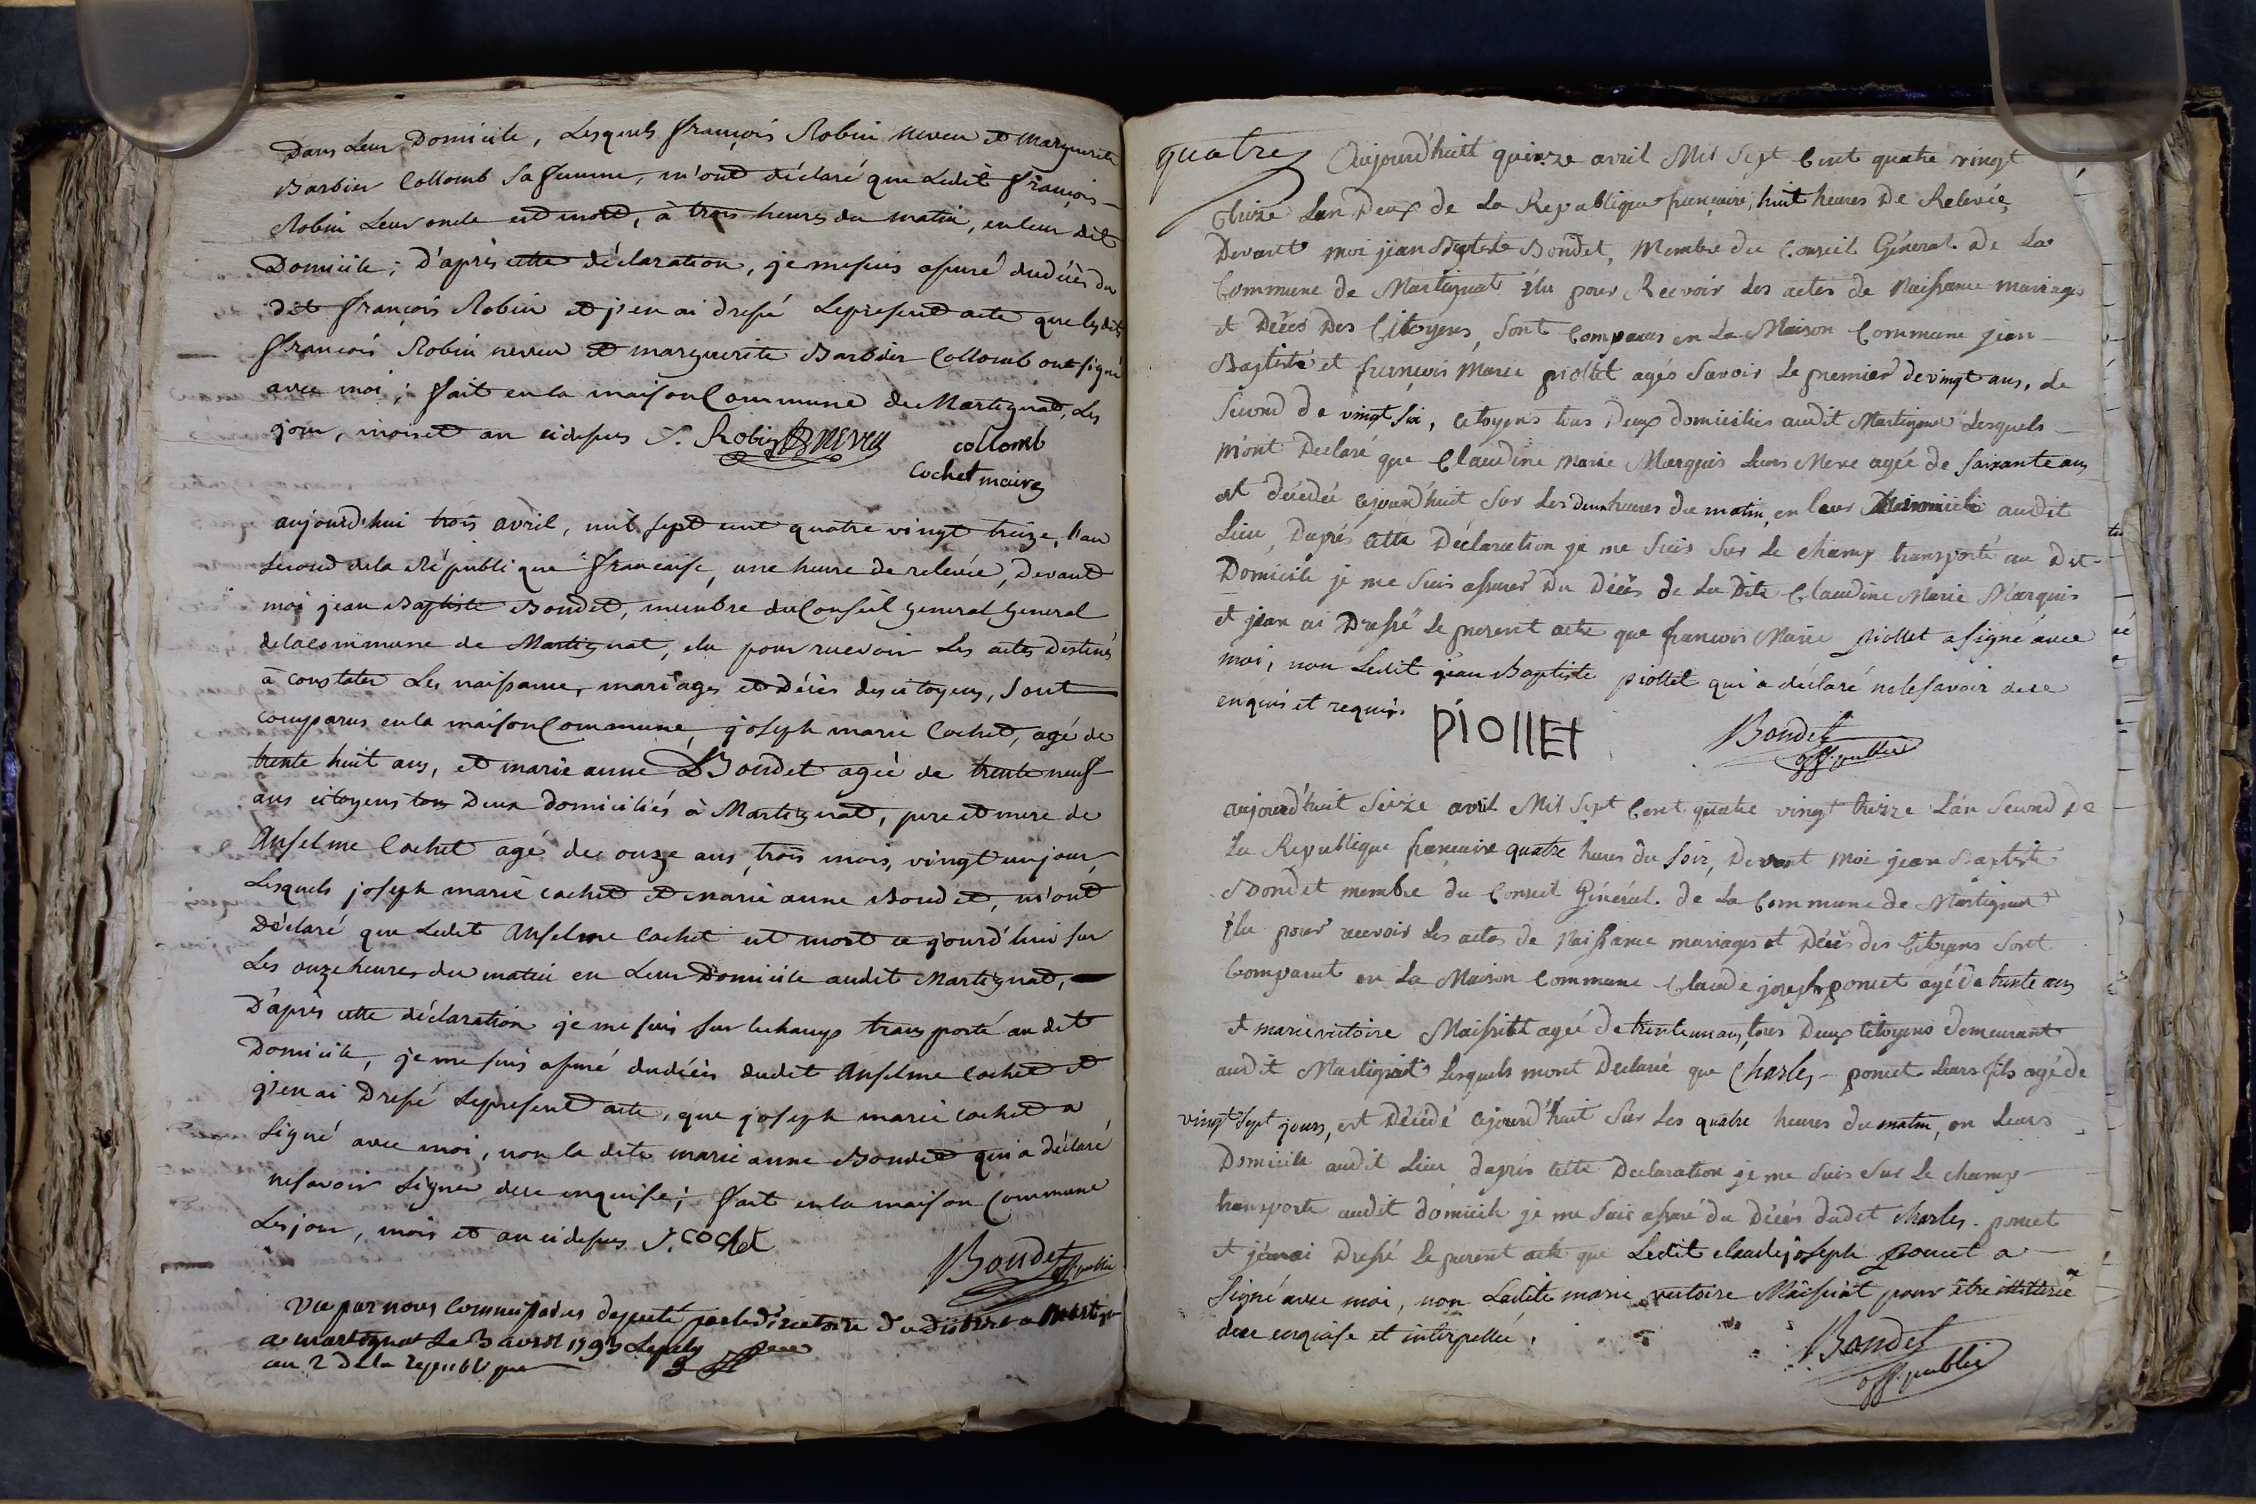 Dans Leur Domicile, Lesquels françois Robin neveu et marguerite
Barbier Collomb sa femme, m'ont déclaré que Ledit françois
Robin Leur oncle est mort, à trois heures du matin, en leur dit
Domicile; D'après cette déclaration, je me suis assuré du décès du
dit françois Robin et j'en ai dressé Le présent acte que lesdits
françois Robin neveu et marguerite Barbier Collomb ont signé
avec moi; fait en la maison Commune de Martignat, les
jour, mois et an cidessus f. Robin neveu collomb
Cochet maire
aujourd'hui trois avril, mil sept cent quatre vingt treize, l'an
second de la République francaise, une heure de relevée, Devant
moi jean Baptiste Bondet, membre du Conseil general general
de la commune de Martignat, elu pour recevoir Les actes Destinés
à constater Les naissance, mariages et Décès des citoyens, Sont
comparus en la maison Commune, joseph marie Cochet, agé de
trente huit ans, et marie anne Bondet agée de trente neuf
ans citoyens tous Deux domiciliés à Martignat, pere et mere de
Anselme Cochet agé de onze ans, trois mois, vingt un jour,
Lesquels joseph marie cochet et marie anne Bondet, m'ont
Déclaré que Ledit Anselme Cochet est mort ce jourd'hui sur
Les onze heures du matin en Leur Domicile audit Martignat,
D'après cette déclaration je me suis sur le champ transporté au dit
Domicile, je me suis assuré du décès dudit Anselme Cochet et
j'en ai Dressé Le présent acte, que joseph marie cochet a
signé avec moi, non la dite marie anne Bondet qui a déclaré
ne savoir signer de ce enquise; fait en la maison Commune
Les jour, mois et an cidessus J. cochet
Bondet off. public
Vu par nous Commissaires deputé par le directoire du district a
a martignat Le 3 avril 1793
an 2 de la republique
quatre Aujourd'huit quinze avril Mil Sept Cent quatre vingt
treize Lan Deux de La Republique françaire, huit heures De Relevée
Devant moi jean Baptiste Bondet, Membre du Conseil Géneral De La
Commune de Martignat élu pour Recevoir des actes de Naissance mariages
et Décés Des Citoyens, Sont Comparus en La Maison Commune jean
Baptiste et françois Marie piollet agés Savoir Le premier de vingt ans, Le
Second de vingt six, Citoyens tous Deux domiciliés audit Martignat Lesquels
m'ont Declaré que Claudine marie Marquis Leurs Mere agée de Soixante ans
est décedée cejourd'huit Sur Les deux heures du matin, en leur Domicile audit
Lieu, Daprés cette Déclaration je me Suis Sur Le champ transporté au Dit
Domicile je me Suis assurer Du Décés de La Dite Claudine Marie Marquis
et jean ai Dressé Le present acte que francois Marie piollet a signé avec
moi, non Ledit jean Baptiste piollet qui a déclaré ne le savoir de ce
enquis et requis
PiOllEt
Bondet
off. public
aujourd'huit Seize avril Mil Sept Cent quatre vingt treize Lan Second De
La Republique françaire quatre heures du soir, Devant moi jean Baptiste
Bondet membre du Conseil Général de La Commune de Martignat
élu pour recevoir Les actes de Naissance mariages et Décés des Citoyens Sont
Comparut en La Maison Commune Claude joseph poncet agé de trente ans
et marie victoire Maissiat agée de trente un ans, tous Deux Citoyens demeurant
audit Martignat Lesquels mont Declaré que Charles poncet Leurs fils agé de
vingt sept jours, est Décedé cejourd'huit Sur Les quatre heures du matin, en Leurs
Domicile audit Lieu daprés cette Declaration je me Suis Sur Le champ
transporté audit domicile je me Suis assuré du Décés dudit charles poncet
et jenai Dressé Le present acte que Ledit claude joseph poncet a
Signé avec moi, non Ladite marie victoire Maissiat pour être illiterée
de ce enquise et interpellée.
Bondet
off. public